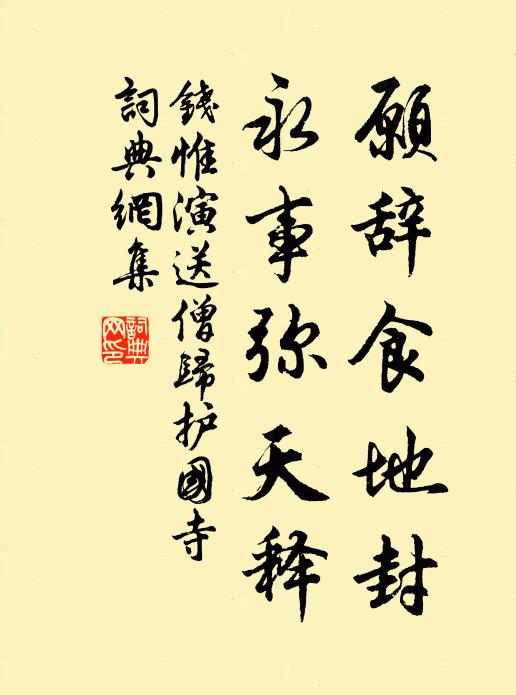 願辞食地封
永事弥天释
錢惟演送僧歸护國寺
詞典網集
詞典网印